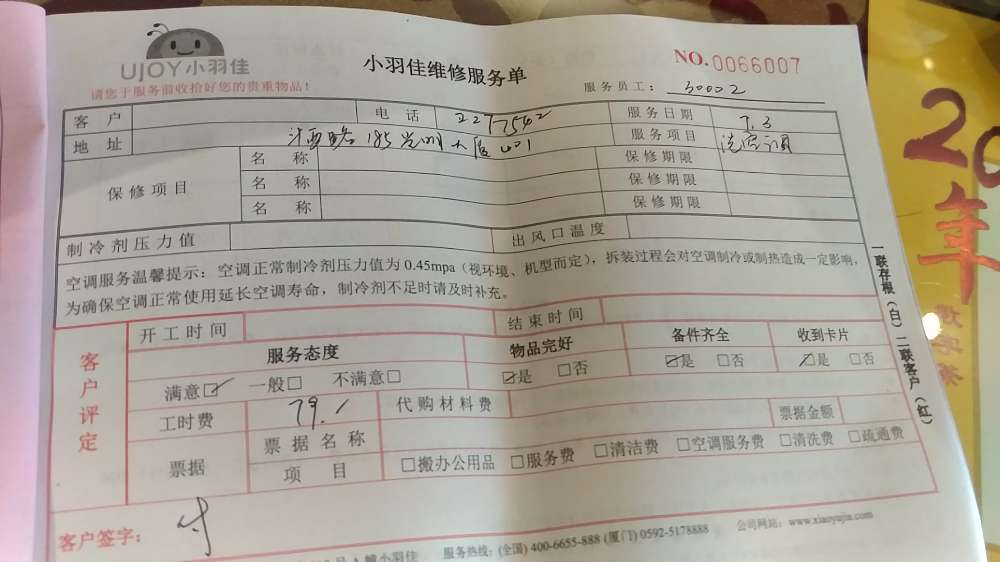 UJOY小羽佳
小羽佳维修服务单
NO.0066007
请您于服务前收拾好您的贵重物品！
服务员工：30002
客户 电话 2277542 服务日期 7.3
地址 185 服务项目 洗空调
保修项目 名称 保修期限
名称 保修期限
名称 保修期限
制冷剂压力值 出风口温度
空调服务温馨提示：空调正常制冷剂压力值为0.45mpa（视环境、机型而定），拆装过程会对空调制冷或制热造成一定影响，
为确保空调正常使用延长空调寿命，制冷剂不足时请及时补充。
客户评定
开工时间 结束时间
服务态度 物品完好 备件齐全 收到卡片
满意☑ 一般□ 不满意□ ☑是 □否 ☑是 □否 ☑是 □否
工时费 79.- 代购材料费 票据金额
票据 票据名称
项目 □搬办公用品 □服务费 □清洁费 □空调服务费 □清洗费 □疏通费
客户签字：
服务热线：(全国) 400-6655-888 (厦门) 0592-5178888 公司网站：www.xiaoyujia.com
一联存根（白）二联客户（红）
20
年